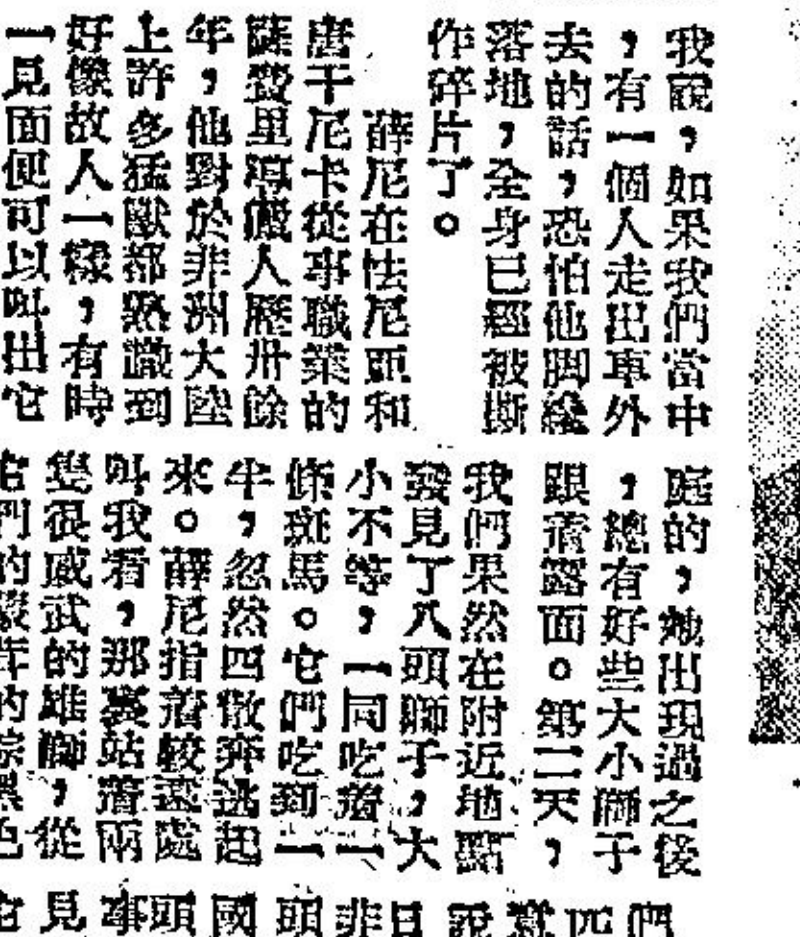 我說，如果我們當中
，有一個人走出車外
去的話，恐怕他脚纔
落地，全身已經被撕
作碎片了。
薛尼在怯尼亞和
唐干尼卡從事職業的
薩費里導儎人歷卅餘
年，他對於非洲大陸
上許多猛獸都熟識到
好像故人一樣，有時
一見面便可以叫出它
庭的，她出現過之後
，總有好些大小獅子
跟着露面。第二天，
我們果然在附近地點
發見了八頭獅子，大
小不等，一同吃着一
條斑馬。它們吃到一
半，忽然四散奔逃起
來。薛尼指着較遠處
叫我看，那裏站着兩
隻很威武的雄獅，從
它們的
的棕黑色
們
匹
說
日
非
頭
國
頭
事
見